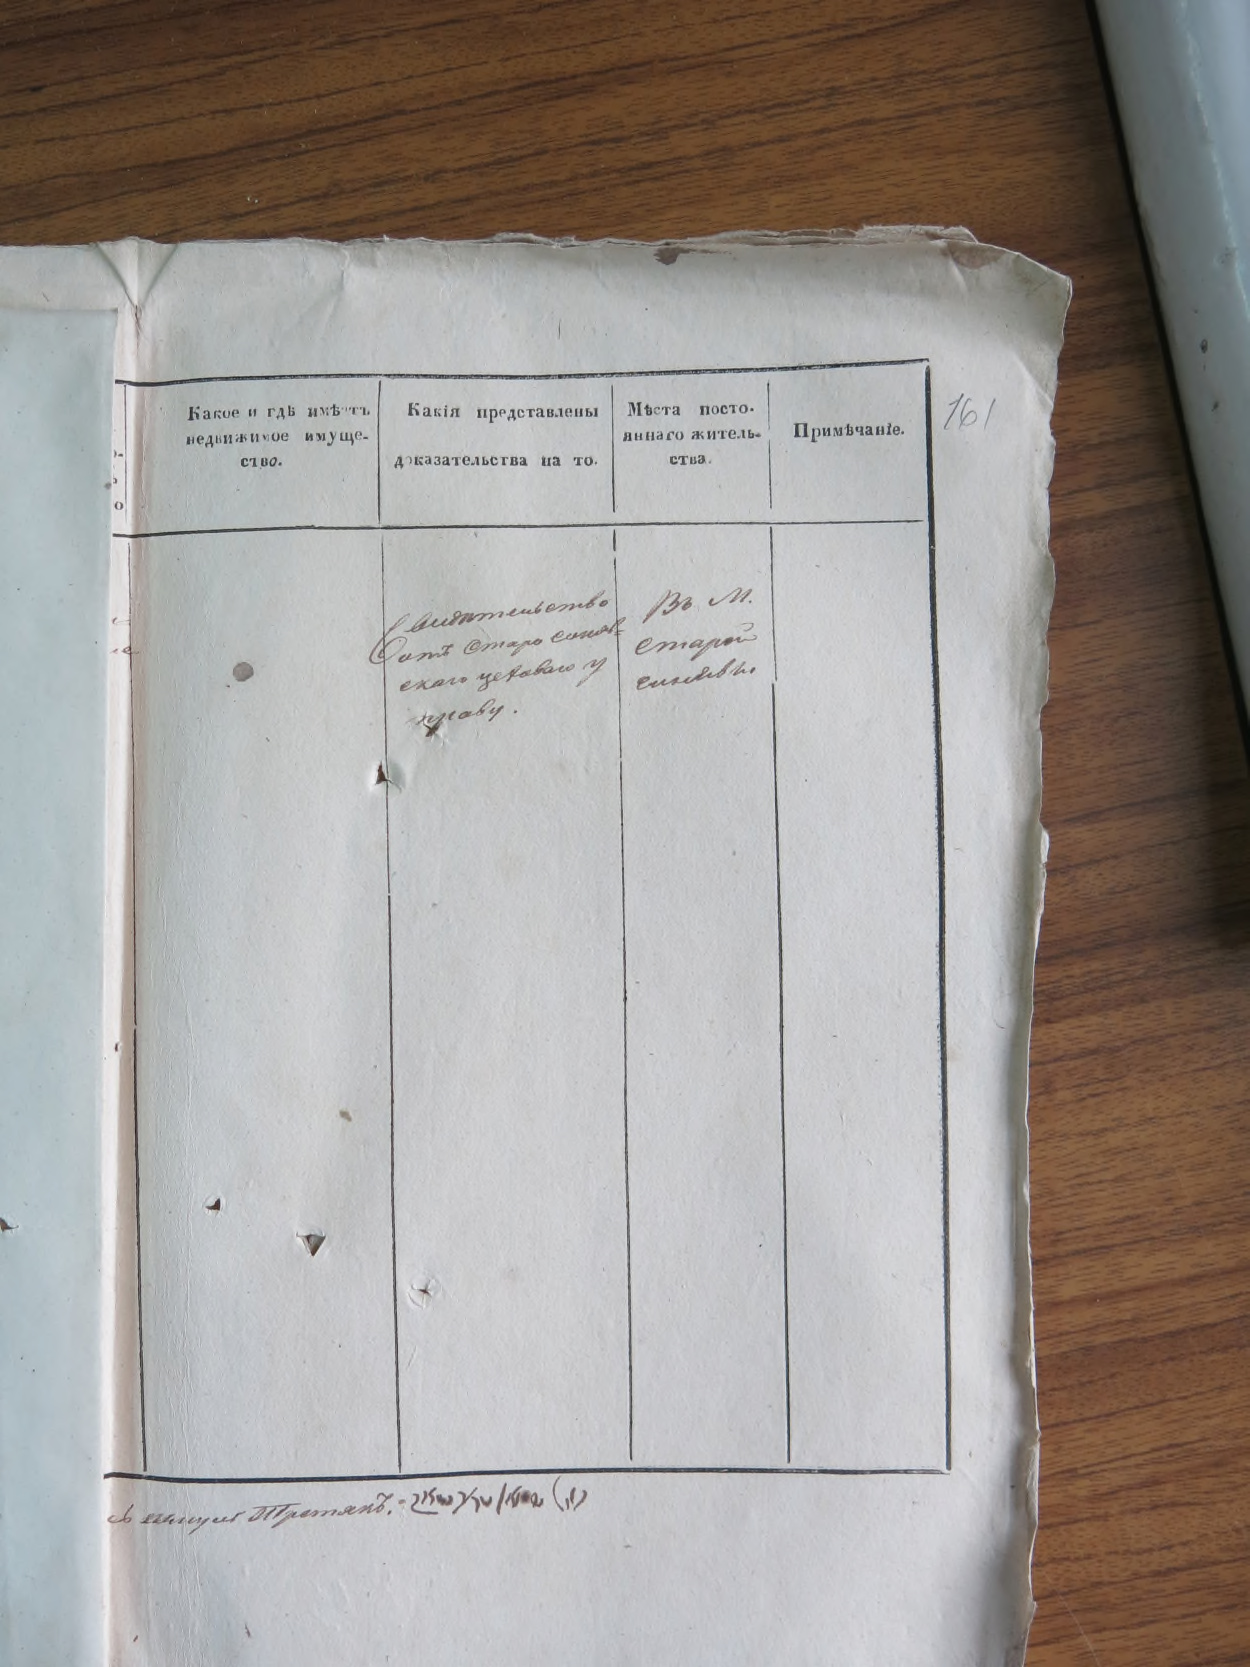 Какое и гдѣ имѣетъ
недвижимое имуще-
ство.
Какія представлены
доказательства на то.
Мѣста посто-
яннаго житель-
ства.
Примѣчаніе.
161
о
Свидѣтельство
отъ Старосиняв-
скаго цеховаго у
праву.
Въ М.
Старой
Синявы.
Третякъ.